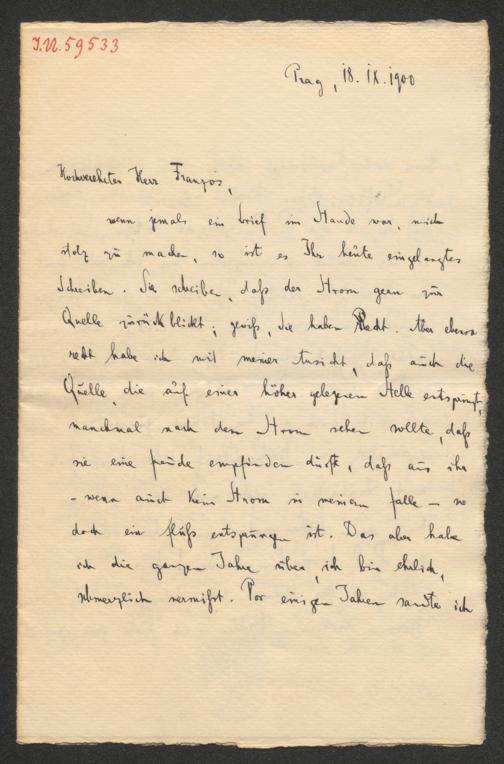 J.N. 59533
Prag, 18. IX. 1900
Hochverehrter Herr François,
wenn jemals ein Brief im Stande war, mich
stolz zu machen, so ist es Ihr heute eingelangtes
Schreiben. Sie schreiben, daß der Strom gern zur
Quelle zurückblickt; gewiß, Sie haben Recht. Aber ebenso
recht habe ich mit meiner Ansicht, daß auch die
Quelle, die auf einer höher gelegenen Stelle entspringt,
manchmal nach dem Strom sehen sollte, daß
sie eine Freude empfinden dürfte, daß aus ihr
– wenn auch kein Strom in meinem Falle – so
doch ein Fluß entsprungen ist. Das aber habe
ich die ganzen Jahre über, ich bin ehrlich,
schmerzlich vermißt. Vor einigen Jahren sandte ich